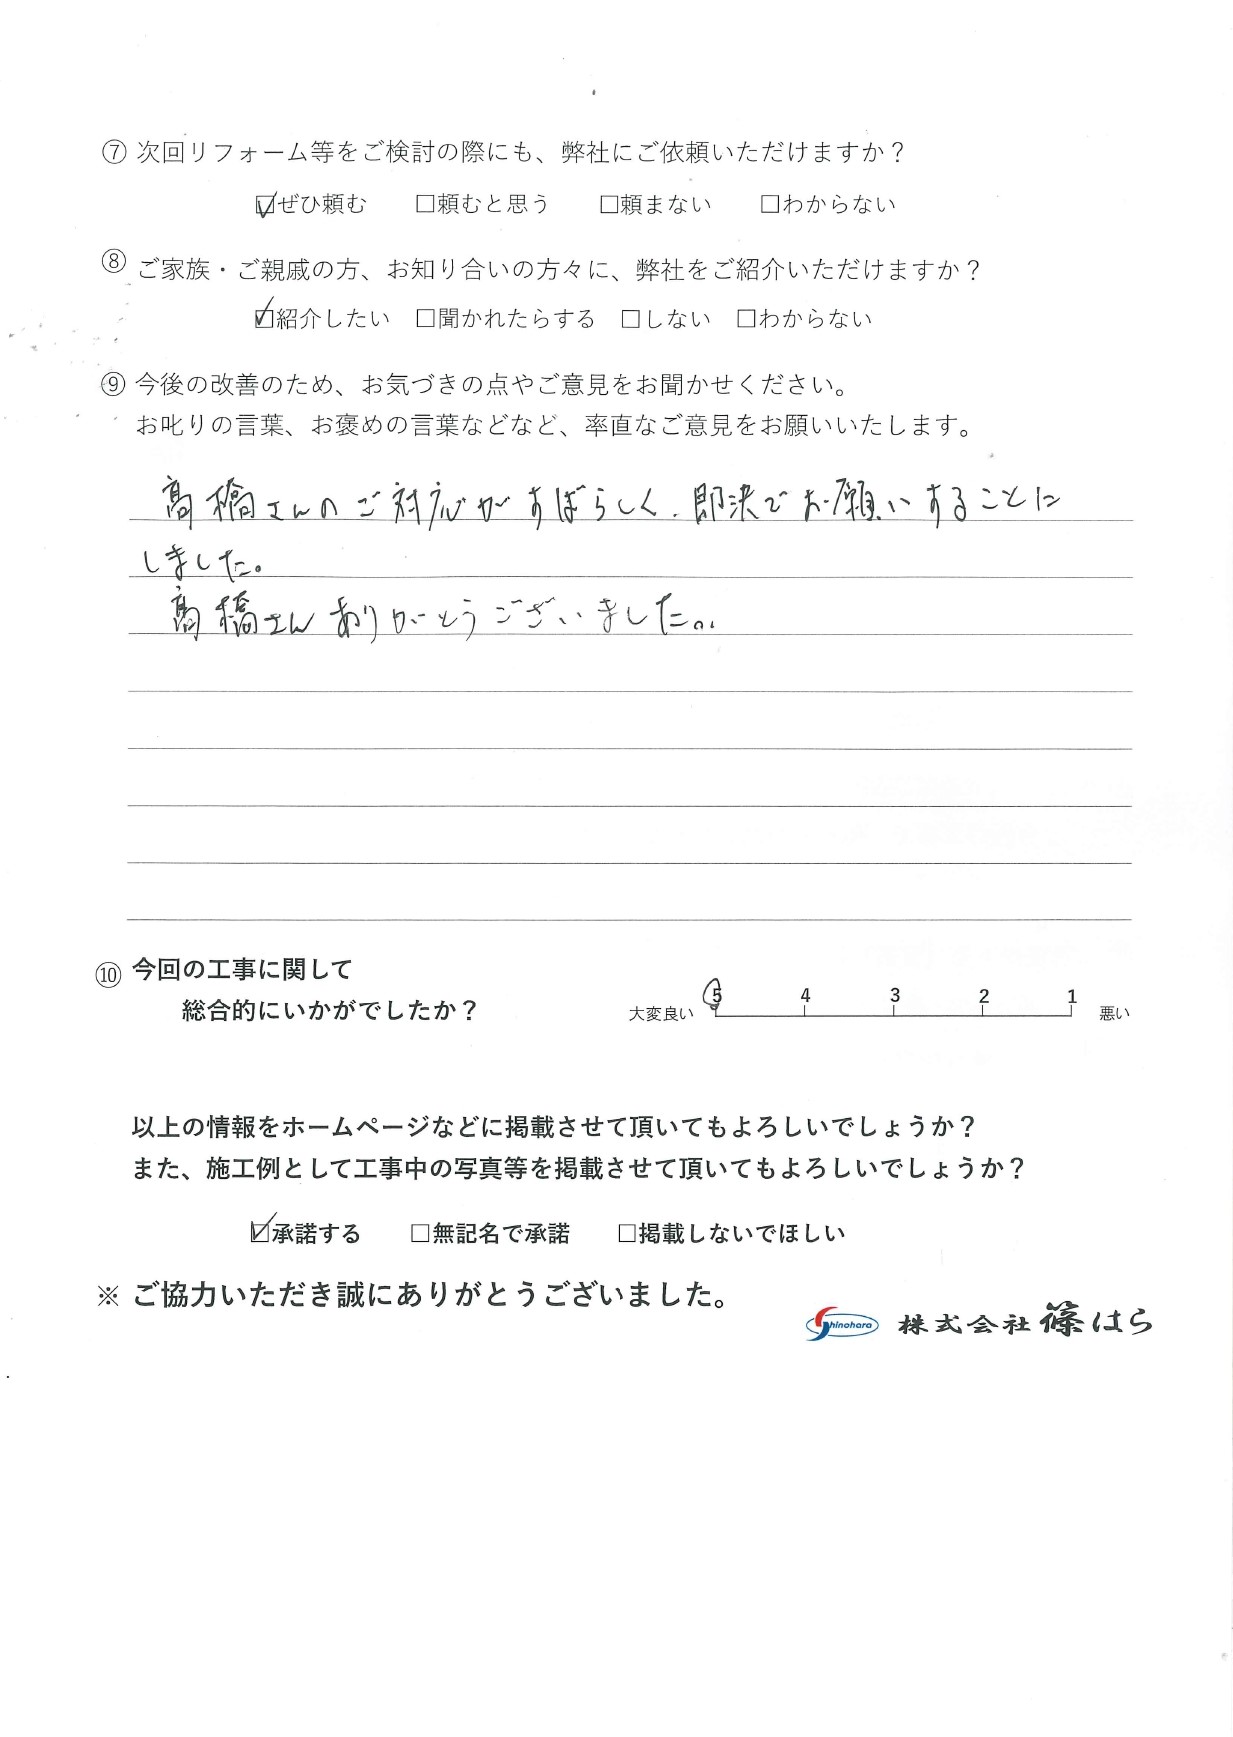 ⑦ 次回リフォーム等をご検討の際にも、弊社にご依頼いただけますか？
☑ぜひ頼む　☐頼むと思う　☐頼まない　☐わからない
⑧ ご家族・ご親戚の方、お知り合いの方々に、弊社をご紹介いただけますか？
☑紹介したい　☐聞かれたらする　☐しない　☐わからない
⑨ 今後の改善のため、お気づきの点やご意見をお聞かせください。
お叱りの言葉、お褒めの言葉などなど、率直なご意見をお願いいたします。
髙橋さんのご対応がすばらしく、即決でお願いすることに
しました。
髙橋さんありがとうございました。
⑩ 今回の工事に関して
総合的にいかがでしたか？
大変良い 5 4 3 2 1 悪い
以上の情報をホームページなどに掲載させて頂いてもよろしいでしょうか？
また、施工例として工事中の写真等を掲載させて頂いてもよろしいでしょうか？
☑承諾する　☐無記名で承諾　☐掲載しないでほしい
※ ご協力いただき誠にありがとうございました。
Shinohara 株式会社 篠はら